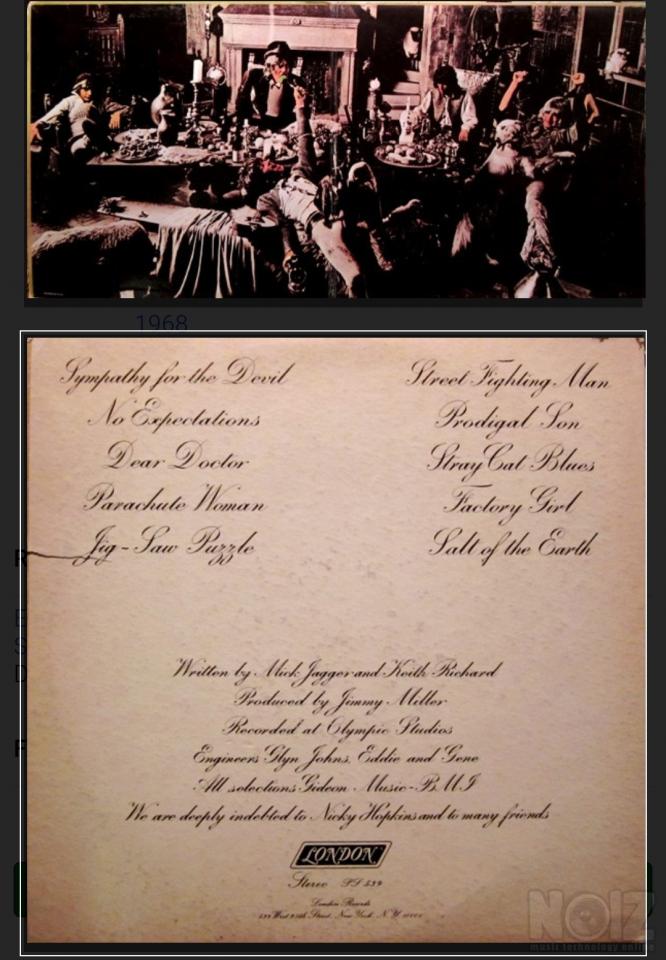 1968
Sympathy for the Devil
No Expectations
Dear Doctor
Parachute Woman
Jig-Saw Puzzle
Street Fighting Man
Prodigal Son
Stray Cat Blues
Factory Girl
Salt of the Earth
Written by Mick Jagger and Keith Richard
Produced by Jimmy Miller
Recorded at Olympic Studios
Engineers Glyn Johns, Eddie and Gene
All selections Gideon Music-BMI
We are deeply indebted to Nicky Hopkins and to many friends
LONDON
Stereo PS 539
London Records
539 West 25th Street, New York, N.Y.
R
E
S
D
F
NOIZ
music technology online